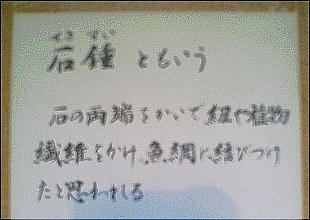 せき すい
石錘 ともいう
石の両端をかいで紐や植物
繊維をかけ、魚網に結びつけ
たと思われる